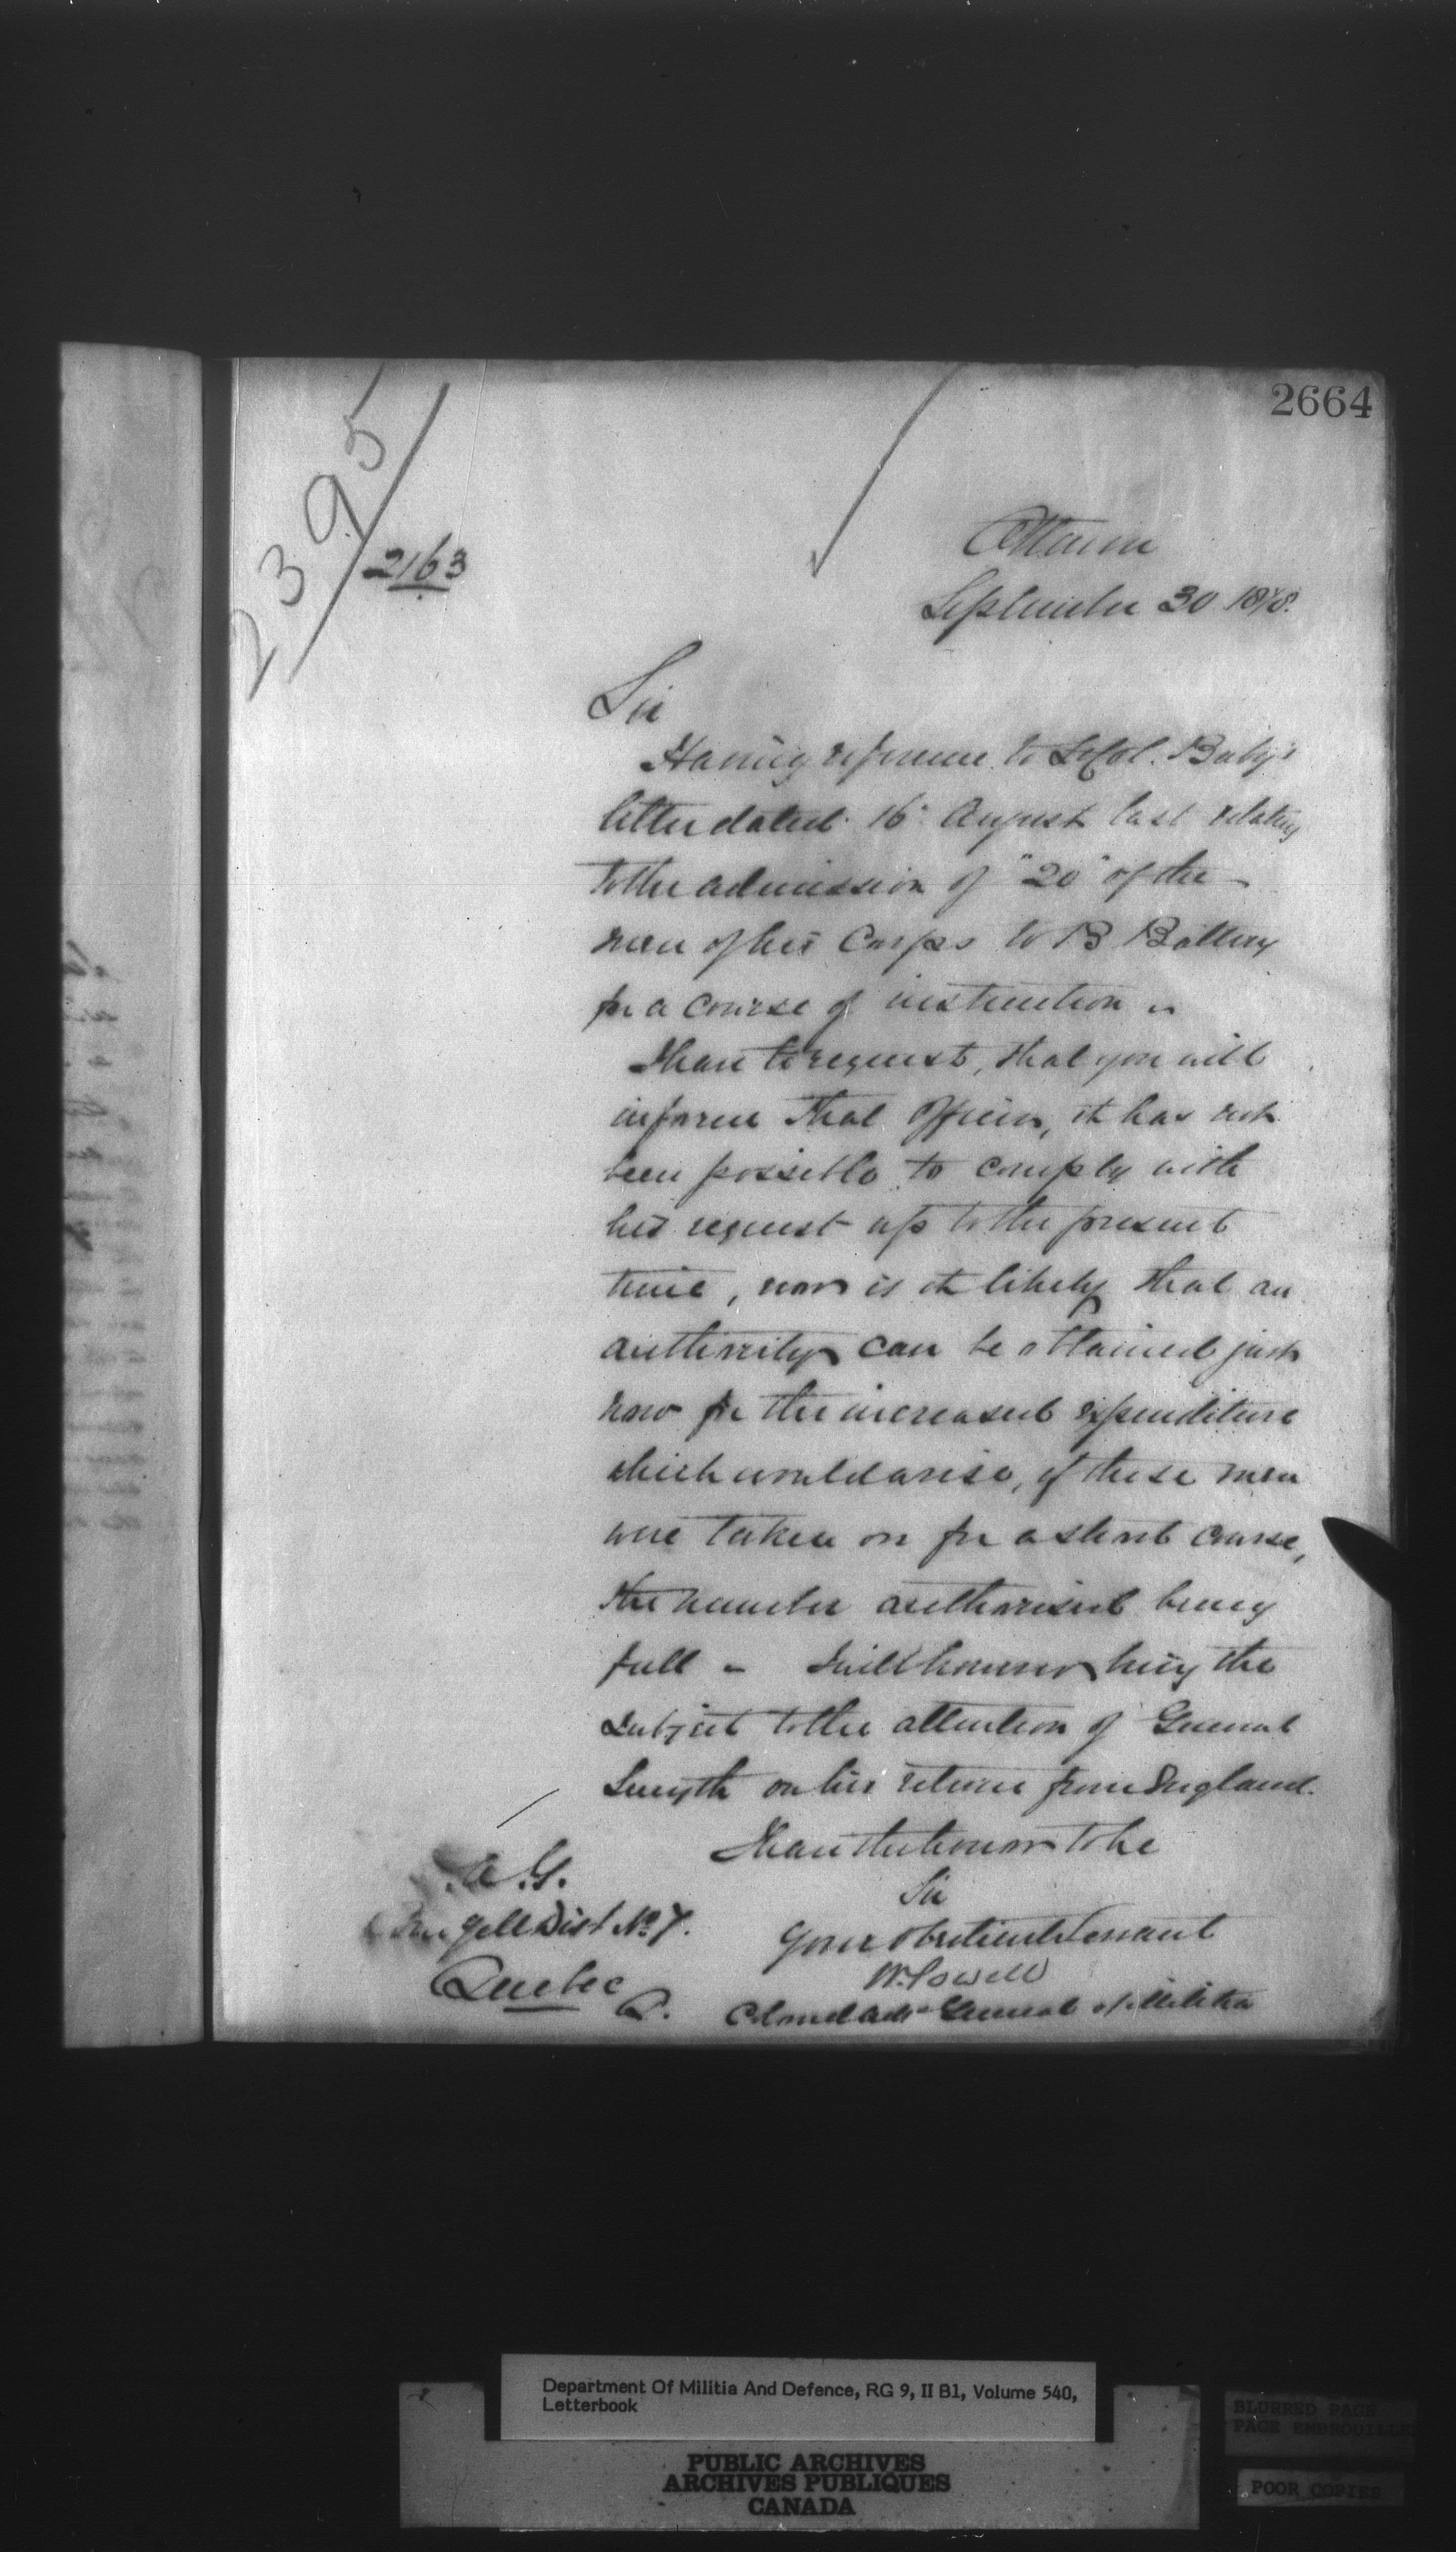 2664
2395
2163
Ottawa
September 30 1878.
Sir
Having reference to Lt Col. Baby's
letter dated 16 August last relating
to the admission of "20" of the
men of his Corps to B Battery
for a course of instruction
I have to request, that you will
inform that Officer, it has not
been possible to comply with
his request up to the present
time, nor is it likely that an
authority can be obtained just
now for the increased expenditure
which would arise, if these men
were taken on for a short course,
the number authorised being
full - I will however bring the
subject to the attention of General
Smyth on his return from England.
I have the honor to be
Sir
Your obedient Servant
W. Powell
Colonel Adjt General of Militia
A.G.
Dist No. 7.
Quebec
Q.
Department Of Militia And Defence, RG 9, II B1, Volume 540,
Letterbook
PUBLIC ARCHIVES
ARCHIVES PUBLIQUES
CANADA
BLURRED PAGE
PAGE EMBROUILLE
POOR COPIES